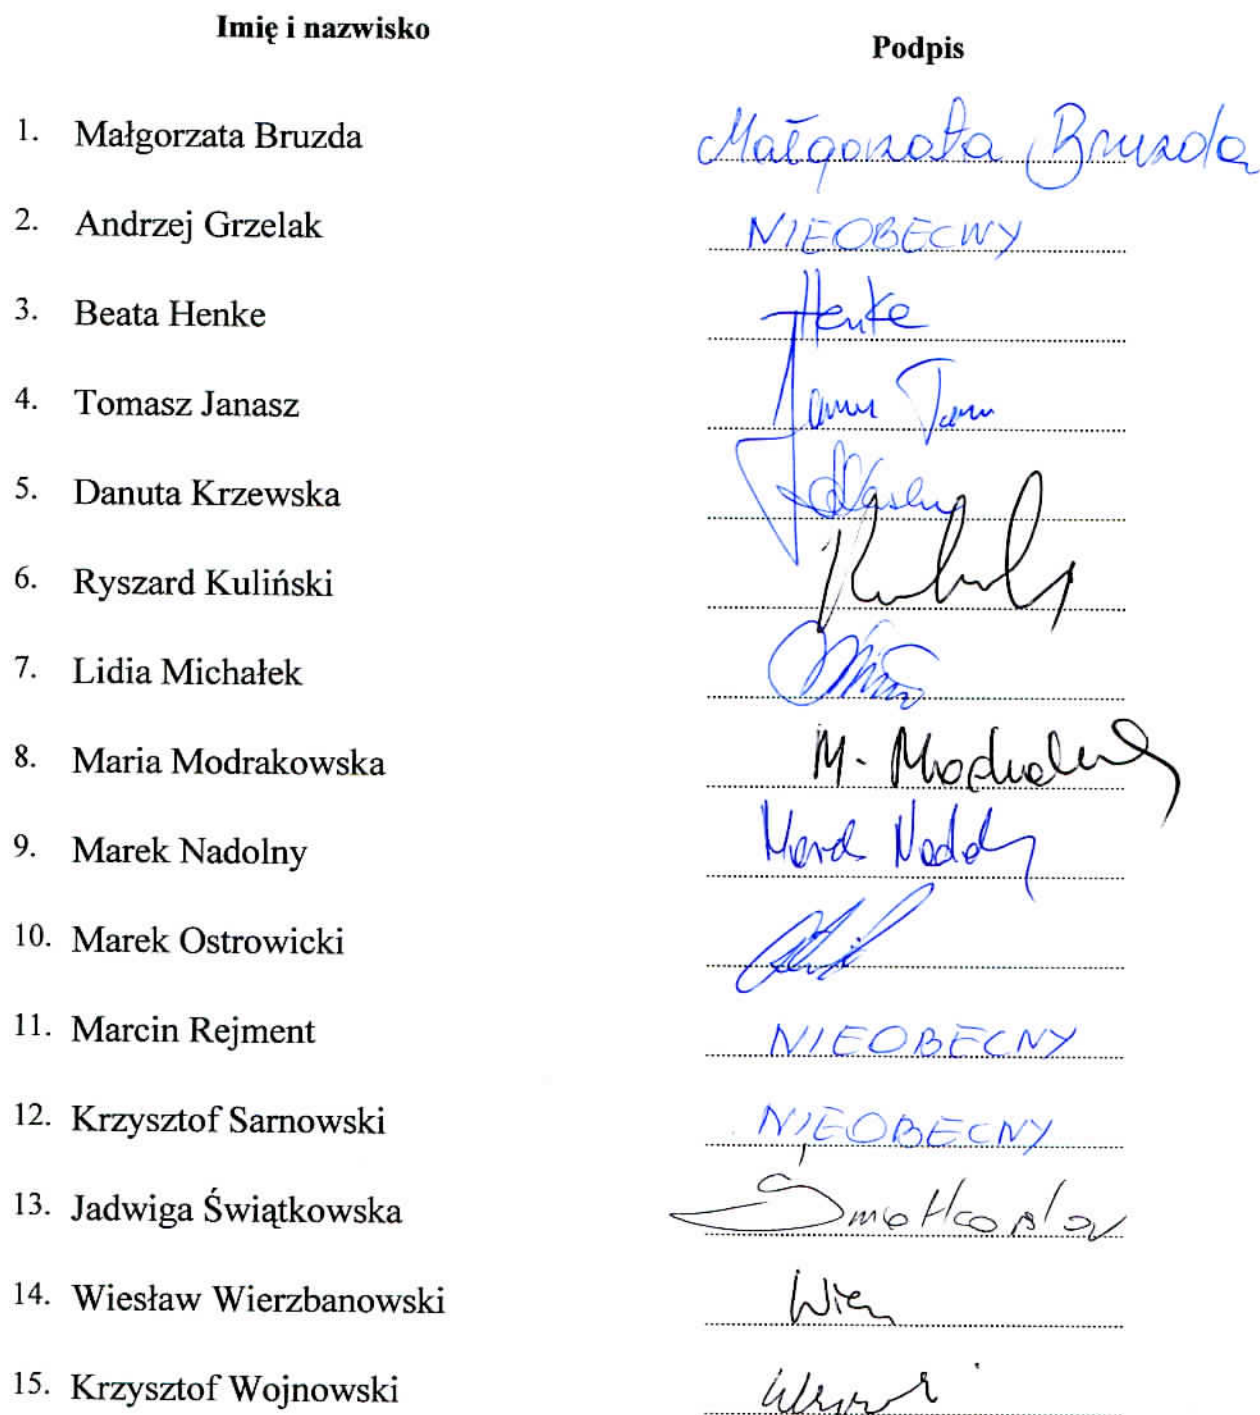 Imię i nazwisko Podpis
1. Małgorzata Bruzda Małgorzata Bruzda
2. Andrzej Grzelak NIEOBECNY
3. Beata Henke Henke
4. Tomasz Janasz
5. Danuta Krzewska
6. Ryszard Kuliński
7. Lidia Michałek
8. Maria Modrakowska M.
9. Marek Nadolny Marek
10. Marek Ostrowicki
11. Marcin Rejment NIEOBECNY
12. Krzysztof Sarnowski NIEOBECNY
13. Jadwiga Świątkowska
14. Wiesław Wierzbanowski
15. Krzysztof Wojnowski